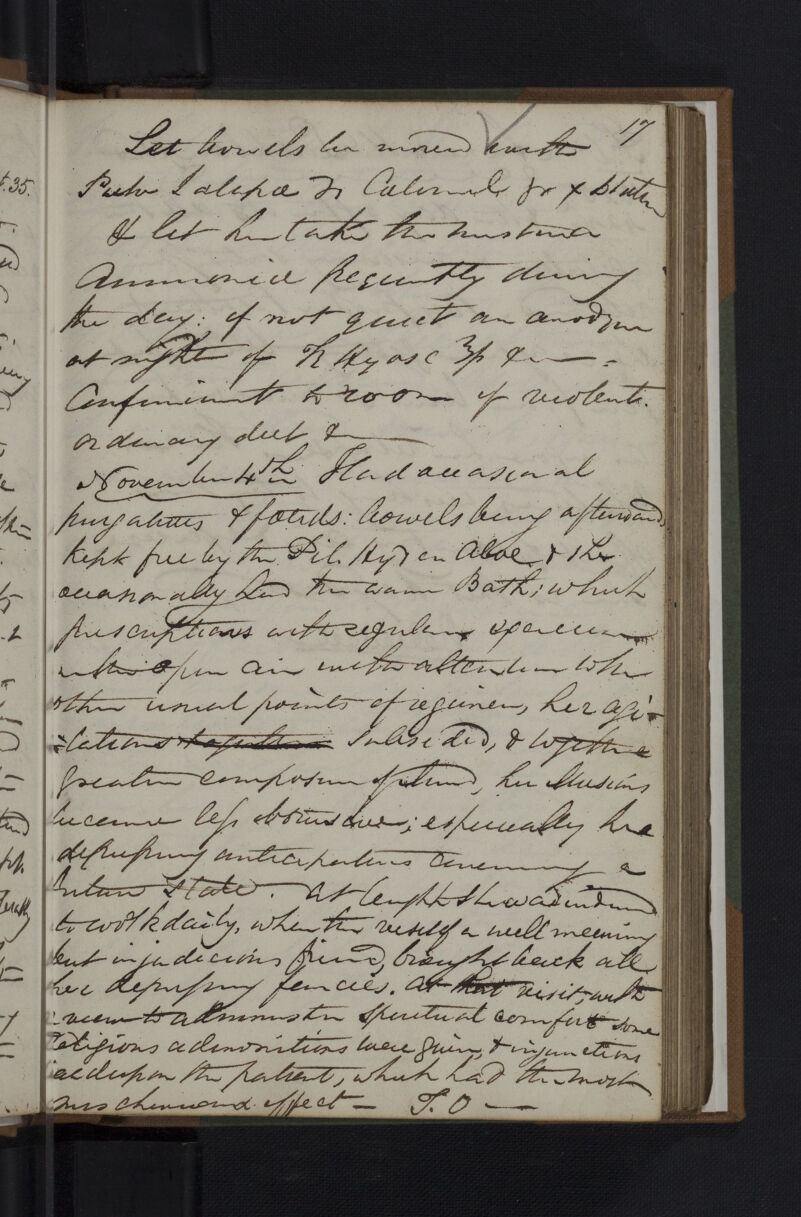 17
Let bowels be moved with
Pulv Jalapæ Calomel gr x
& let her take the mistura
Ammoniæ frequently during
the day: if not quiet an anodyne
at night of Tr Hyosc &c
Confinement to room if violent.
ordinary diet &c
November 4th Had occasional
purgatives & foetids: bowels being afterwards
kept free by the Pil Hyd cu Aloe & She
occasionally had the warm Bath; which
prescriptions with regular exercise
in the open air with attention to the
other usual points of regimen, her agi-
-tations together subsided, & together
greater composure of mind, her illusions
became less obtrusive; especially her
depressing anticipations concerning a
future State. At length she was induced
to work daily, when the visit of a well meaning
but injudicious friend, brought back all
her depressing fancies. At that visit, with
view to administer spiritual comfort some
religious admonitions were given, & injunctions
laid upon the patient, which had the most
mischievous effect — T.O —
t.35.